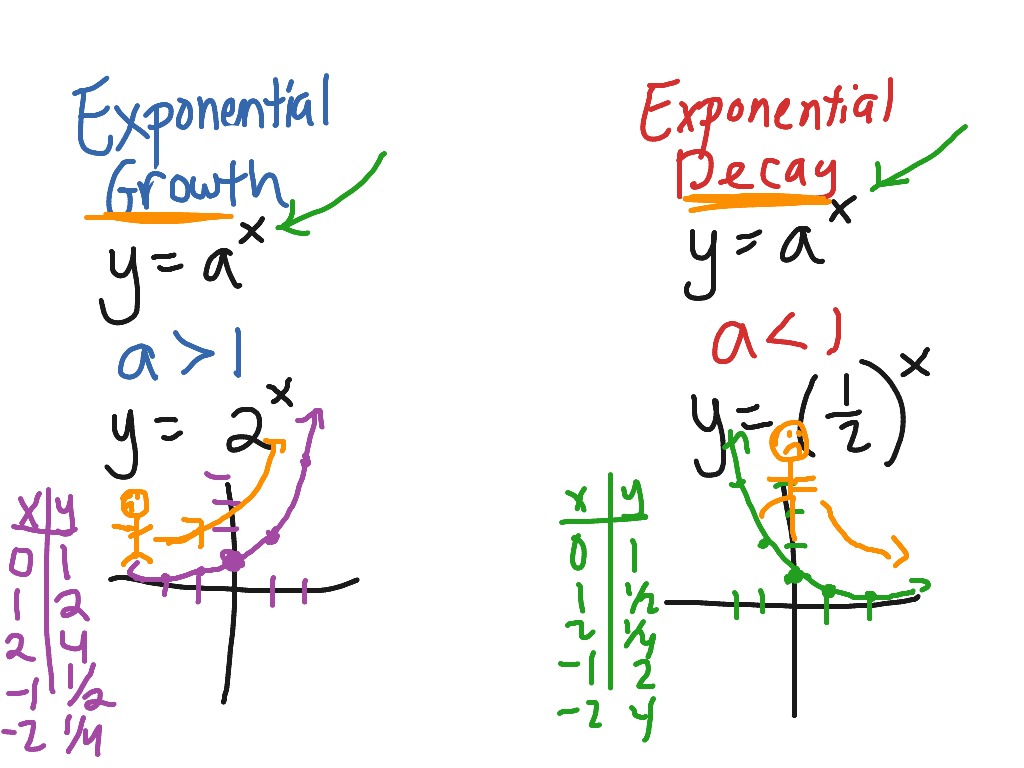 Exponential
Growth
y = a^x
a > 1
y = 2^x
x y
0 1
1 2
2 4
-1 1/2
-2 1/4
Exponential
Decay
y = a^x
a < 1
y = (1/2)^x
x y
0 1
1 1/2
2 1/4
-1 2
-2 4